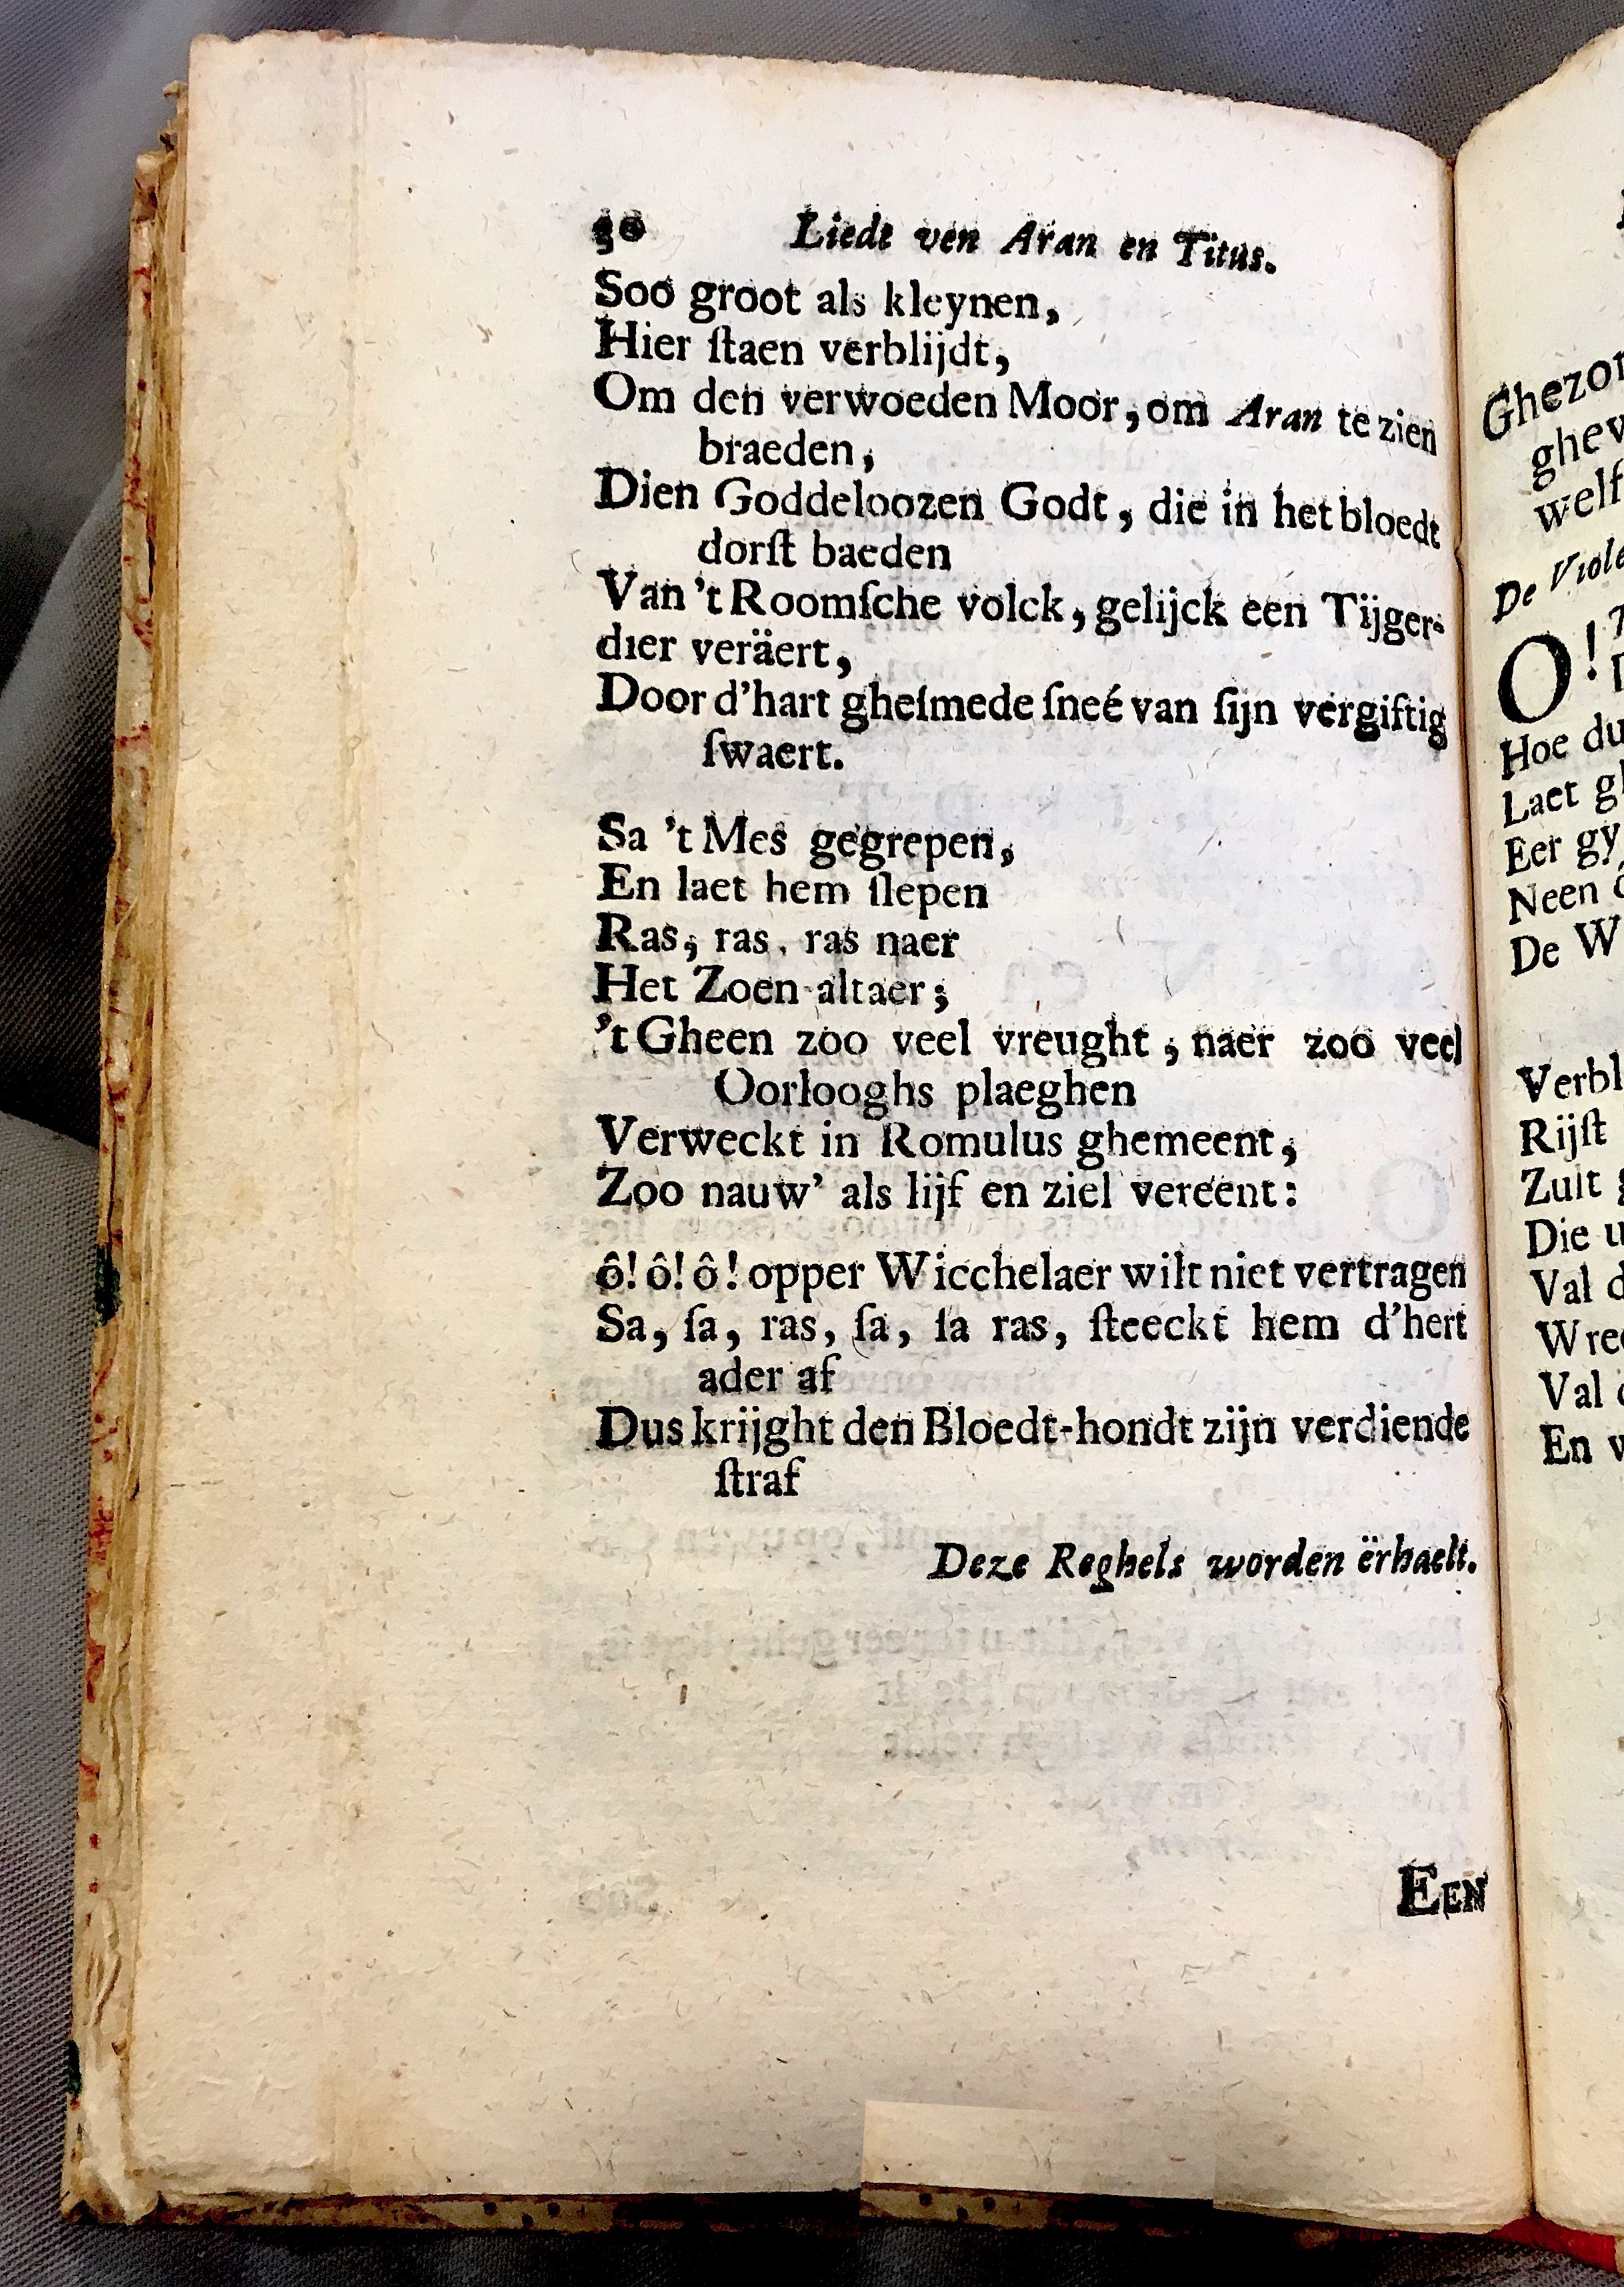 50 Liedt ven Aran en Titus.
Soo groot als kleynen,
Hier ſtaen verblijdt,
Om den verwoeden Moor, om Aran te zien
braeden,
Dien Goddeloozen Godt, die in het bloedt
dorſt baeden
Van 't Roomſche volck, gelijck een Tijger-
dier veräert,
Door d'hart gheſmede ſneé van ſijn vergiftig
ſwaert.
Sa 't Mes gegrepen,
En laet hem ſlepen
Ras, ras, ras naer
Het Zoen-altaer;
't Gheen zoo veel vreught, naer zoo veel
Oorlooghs plaeghen
Verweckt in Romulus ghemeent,
Zoo nauw' als lijf en ziel vereent:
ô! ô! ô! opper Wicchelaer wilt niet vertragen
Sa, ſa, ras, ſa, ſa ras, ſteeckt hem d'hert
ader af
Dus krijght den Bloedt-hondt zijn verdiende
ſtraf
Deze Reghels worden ërhaelt.
EEN
De
O!
Hoe
Laet
Eer gy
Neen
De
Rijſt
Zult
Die
Val
Val
En